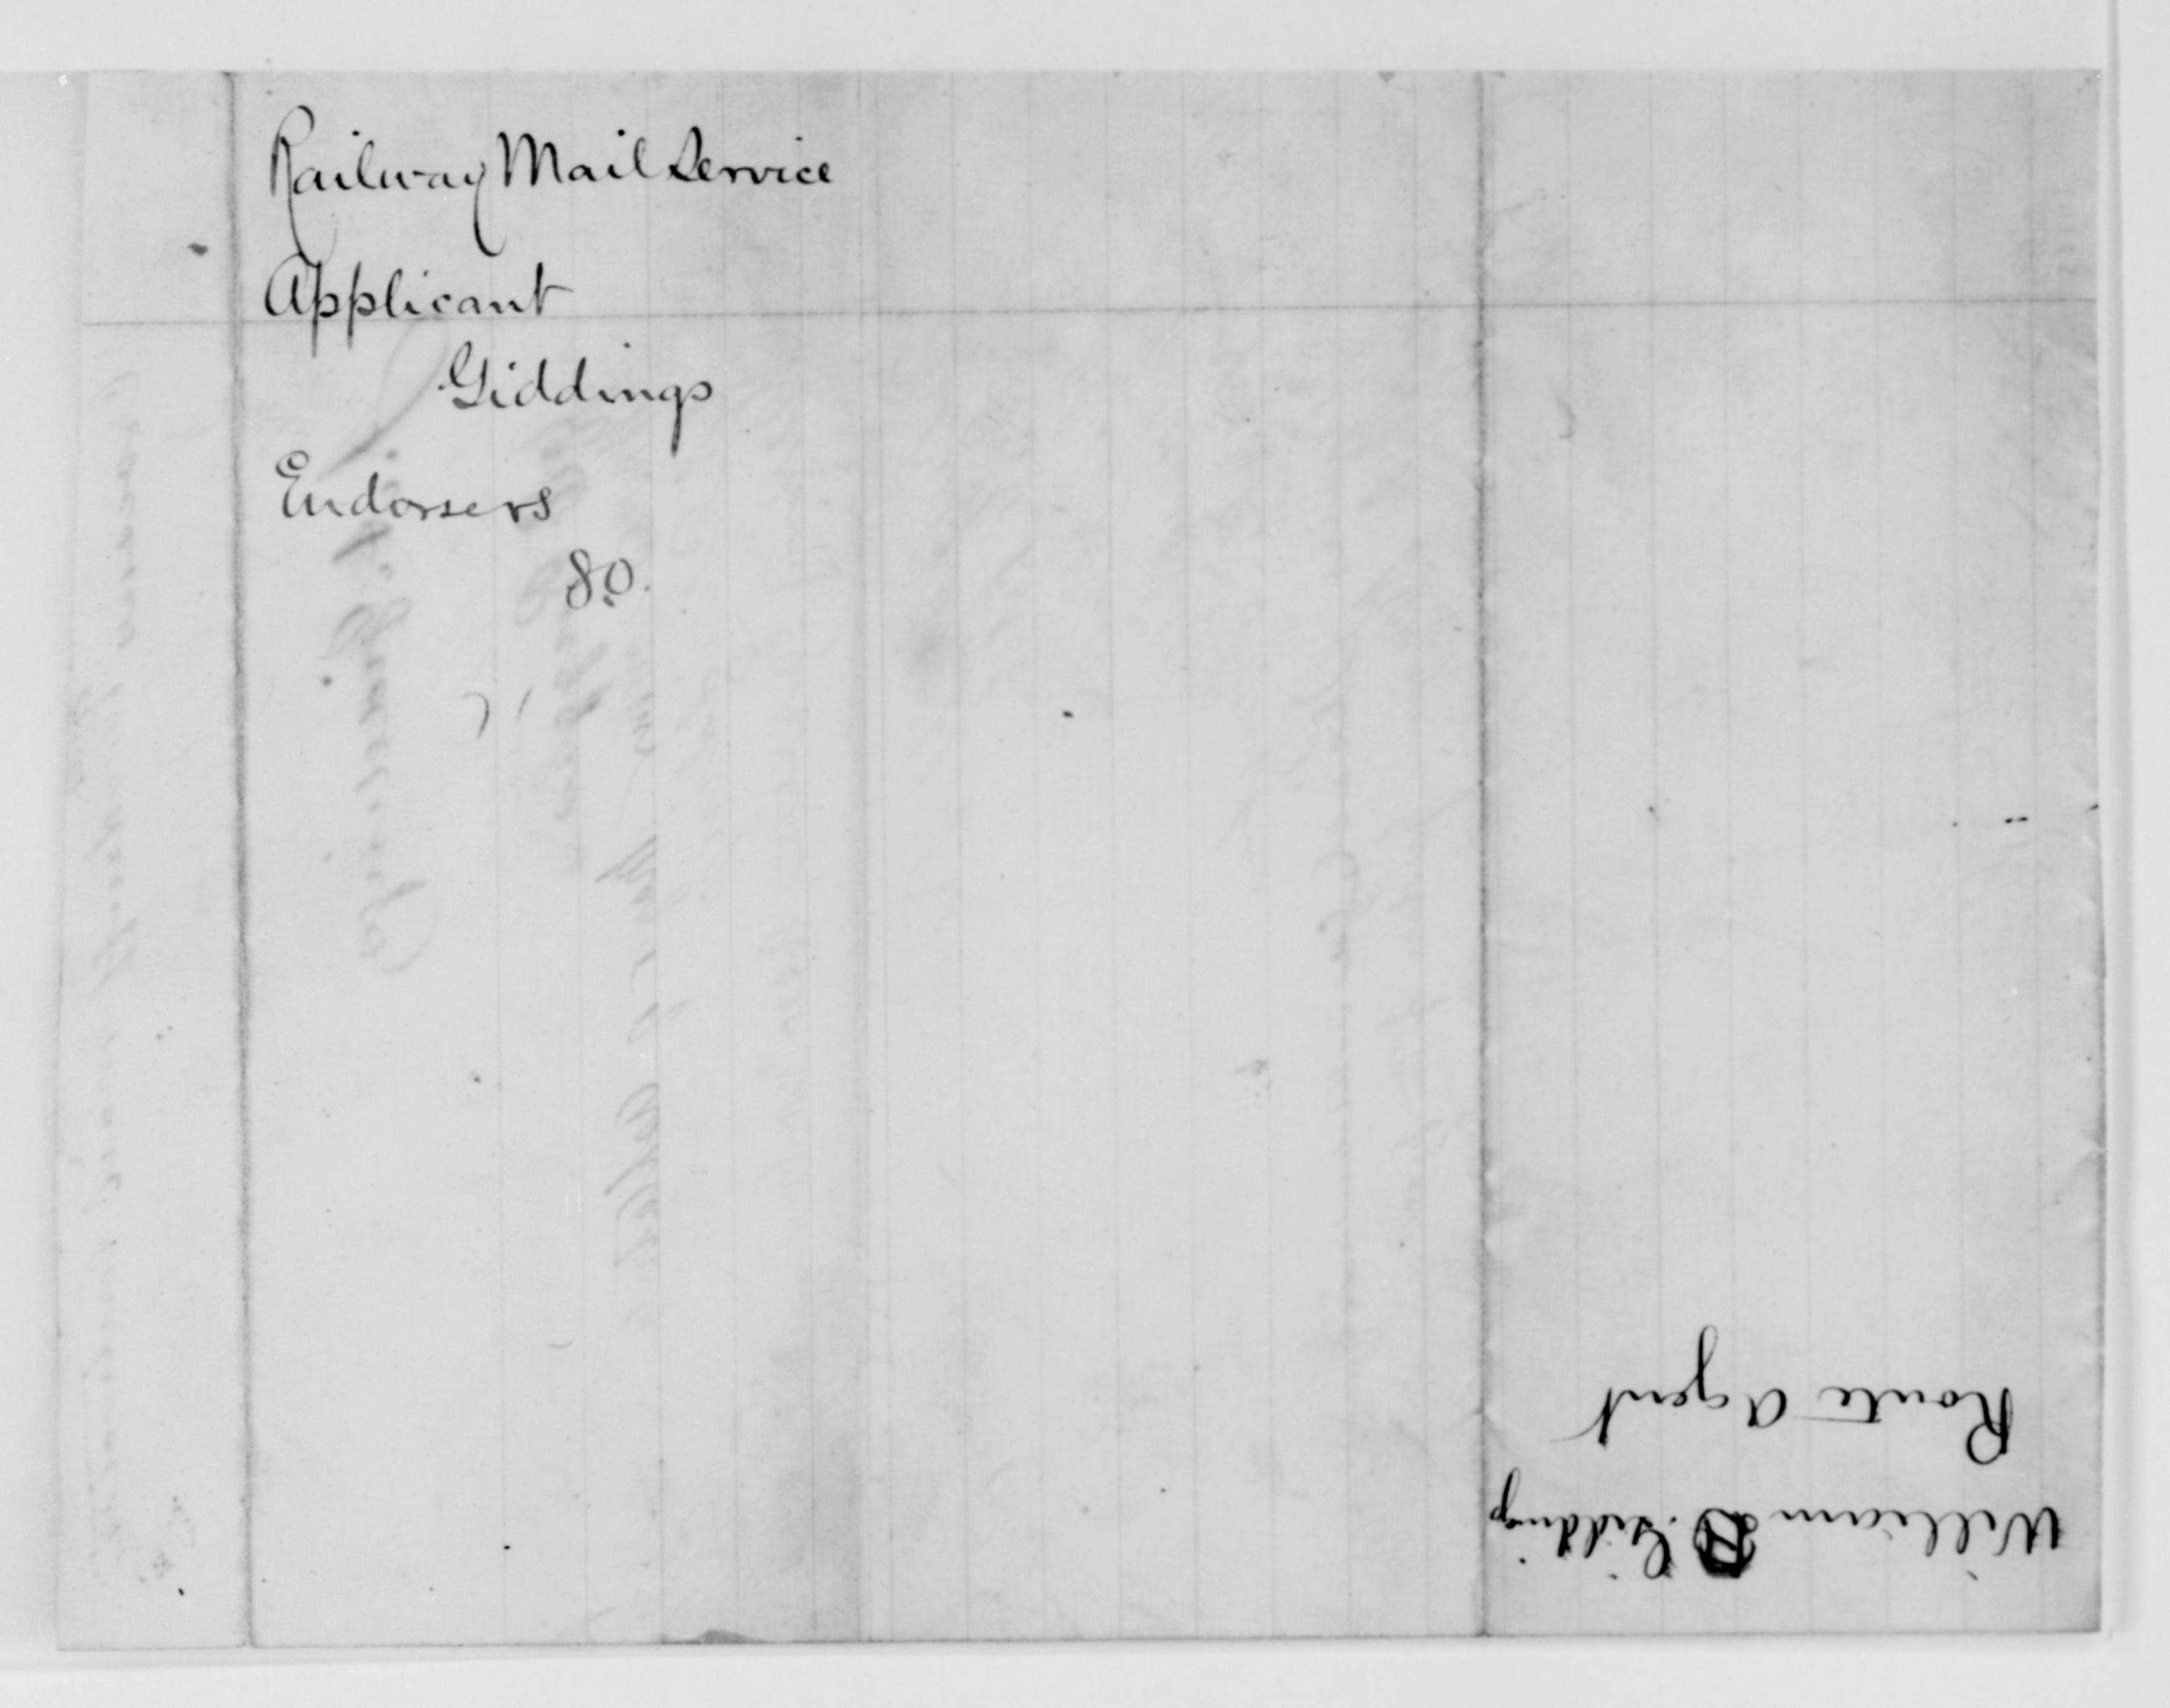 Railway Mail Service
Applicant
Giddings
Endorsers
80.
William Giddings
Route Agent